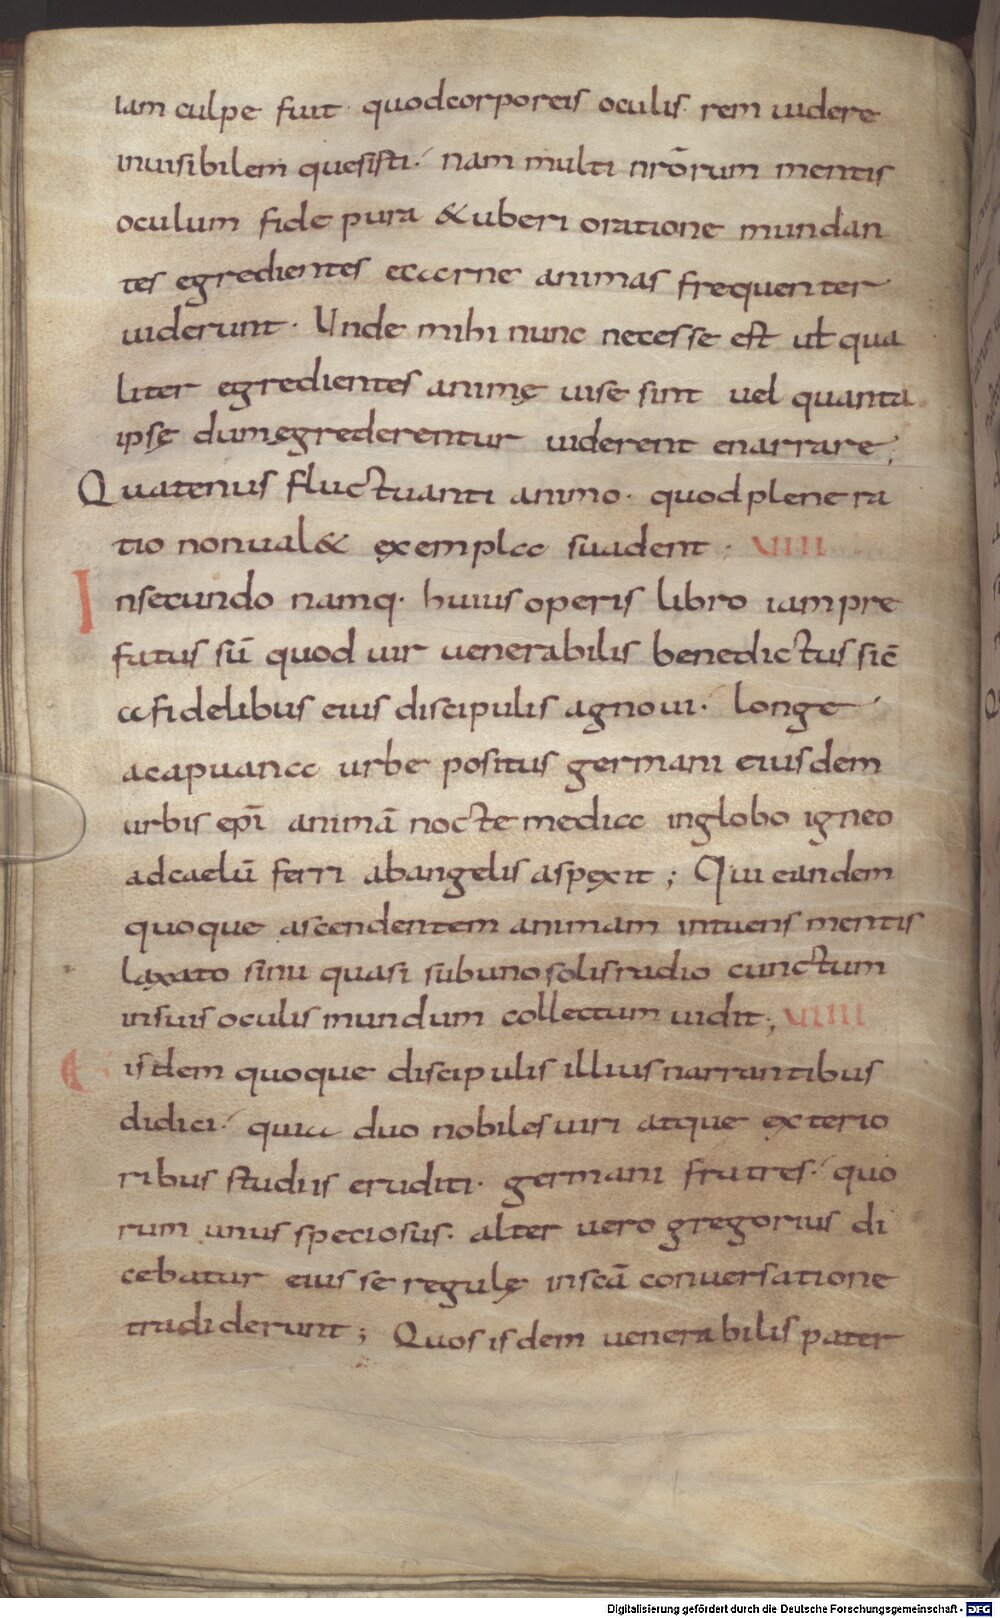 iam culpe fuit· quodcorporeis oculis· rem uidere
inuisibilem quesisti· nam multi nrōrum mentis
oculum fide pura &uberi oratione mundan
tes egredientes ecarne animas frequenter
uiderunt· Unde mihi nunc necesse est ut qua
liter egredientes animę uise sint uel quanta
ipsę dumęgrederentur uiderent enarrare;
Quatenus fluctuanti animo· quod plene ra
tio nonual& exempla suadent· VIII
Insecundo namq· huius operis libro iampre
fatus sū quod uir uenerabilis benedictus sic̄
afidelibus eius discipulis agnoui· longe
acapuana urbe positus germani eiusdem
urbis ep̄i animā nocte media inglobo igneo
adcaelū ferri abangelis aspexit; Qui eandem
quoque ascendentem animam intuens mentis
laxato sinu quasi subunosolisradio cunctum
insuis oculis mundum collectum uidit; VIIII
Eisdem quoque discipulis illius narrantibus
didici· quia duo nobiles uiri atque exterio
ribus studiis eruditi· germani fratres· quo
rum unus speciosus· alter uero gregorius di
cebatur eius se regulę inscā conuersatione
tradiderunt; Quos isdem uenerabilis pater
Digitalisierung gefördert durch die Deutsche Forschungsgemeinschaft - DFG